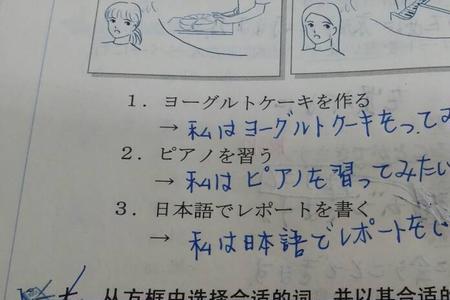 1. ヨーグルトケーキを作る
→ 私はヨーグルトケーキをつ
2. ピアノを習う
→ 私はピアノを習ってみたい
3. 日本語でレポートを書く
→ 私は日本語でレポートを
七、从方框中选择合适的词，并以其合适的